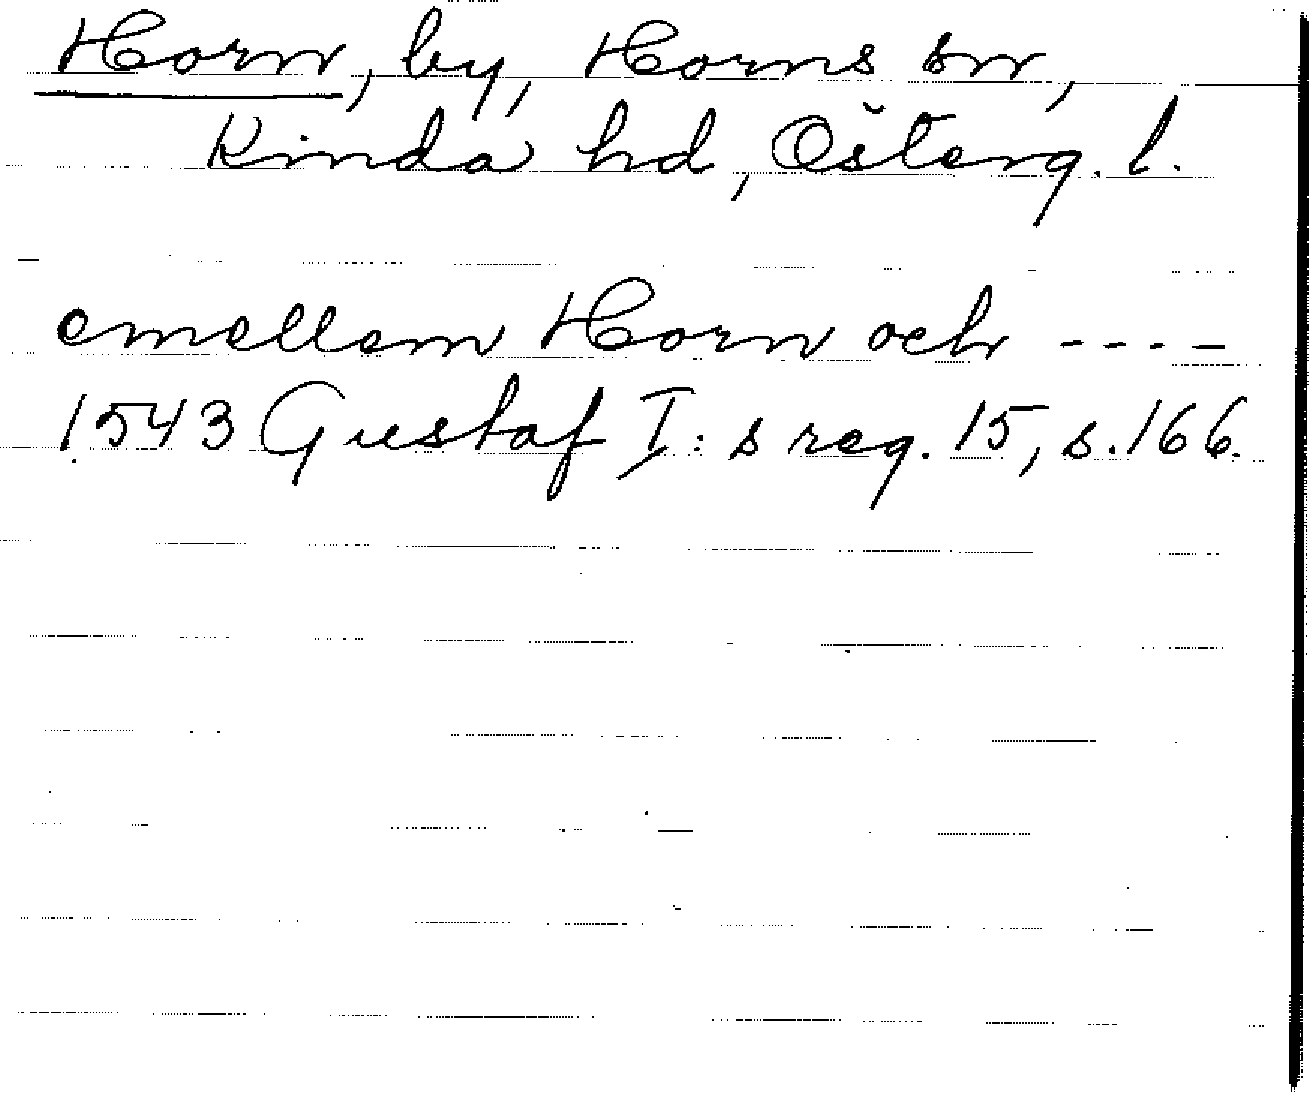 Horn, by, Horns sn,
Kinda hd, Österg. l.
emellem Horn och ----
1543 Gustaf I:s reg. 15, s. 166.